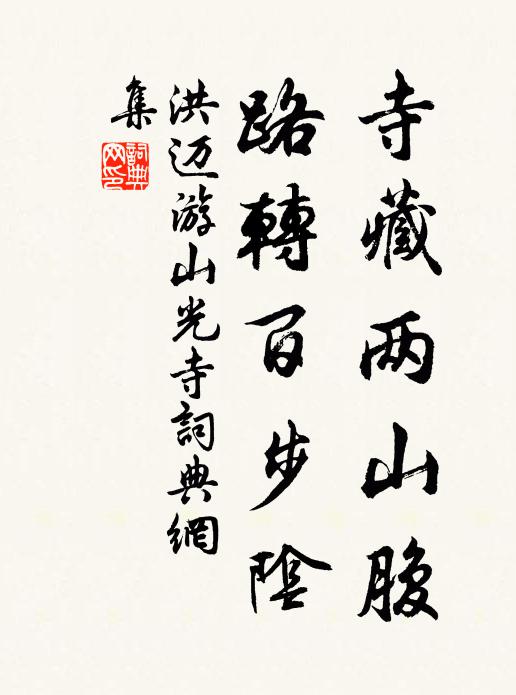 寺藏两山腹
路轉百步陰
洪迈游山光寺詞典網
集
詞典网印